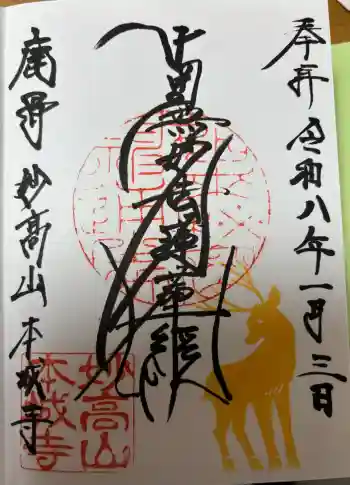 奉拝 令和八年一月三日
南無妙法蓮華経
鹿野 妙高山 本城寺
妙高山
本城寺